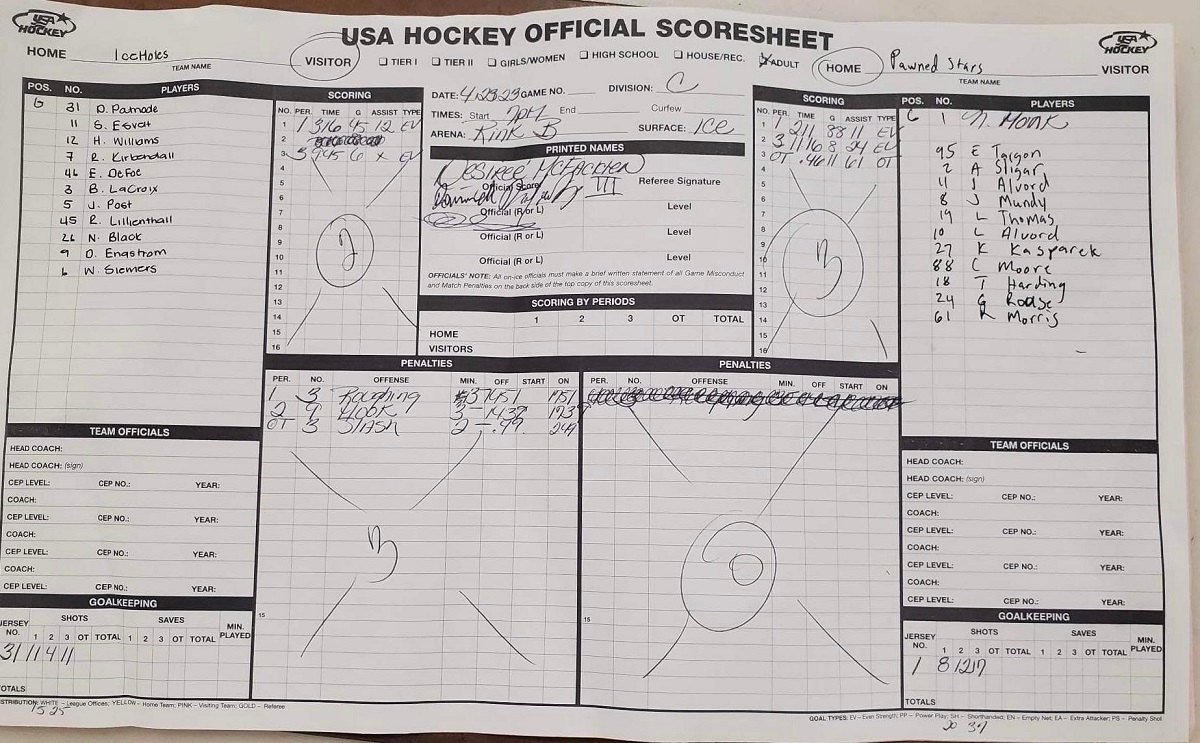 USA HOCKEY
USA HOCKEY OFFICIAL SCORESHEET
USA HOCKEY
HOME IceHoles VISITOR
TEAM NAME
☐ TIER I ☐ TIER II ☐ GIRLS/WOMEN ☐ HIGH SCHOOL ☐ HOUSE/REC. ☒ ADULT
HOME Pawned Stars VISITOR
TEAM NAME
POS. NO. PLAYERS
G 31 D. Patnode
11 S. Esvat
12 H. Williams
7 R. Kirbendall
46 E. DeFoe
3 B. LaCroix
5 J. Post
45 R. Lillienthall
26 N. Black
9 D. Engstrom
6 W. Siemers
SCORING
NO. PER. TIME G ASSIST TYPE
1 1 316 45 12 EV
2
3 3 945 6 x EV
4
5
6
7
8
9
10
11
12
13
14
15
16
2
DATE: 4/23/23 GAME NO. DIVISION: C
TIMES: Start 7pm End Curfew
ARENA: Rink B SURFACE: ICE
PRINTED NAMES
Desireé McFadden
Official Scorer Referee Signature
III
Official (R or L) Level
Official (R or L) Level
Official (R or L) Level
OFFICIALS' NOTE: All on-ice officials must make a brief written statement of all Game Misconduct
and Match Penalties on the back side of the top copy of this scoresheet.
SCORING BY PERIODS
1 2 3 OT TOTAL
HOME
VISITORS
SCORING
NO. PER. TIME G ASSIST TYPE
1 1 211 88 11 EV
2 3 1116 8 24 EV
3 OT .46 11 61 OT
4
5
6
7
8
9
10
11
12
13
14
15
16
3
POS. NO. PLAYERS
G 1 N. Monk
95 E Targon
2 A Sligar
11 J Alvord
8 J Mundy
19 L Thomas
10 L Alvord
27 K Kasparek
88 C Moore
18 T Harding
24 G Rodse
61 K Morris
PENALTIES
PER. NO. OFFENSE MIN. OFF START ON
1 3 Roughing 3 1451 1151
2 9 Hook 3 - 1437 1237
OT 3 Slash 2 - .49 249
15
3
PENALTIES
PER. NO. OFFENSE MIN. OFF START ON
15
0
TEAM OFFICIALS
HEAD COACH:
HEAD COACH: (sign)
CEP LEVEL: CEP NO.: YEAR:
COACH:
CEP LEVEL: CEP NO.: YEAR:
COACH:
CEP LEVEL: CEP NO.: YEAR:
COACH:
CEP LEVEL: CEP NO.: YEAR:
GOALKEEPING
JERSEY NO. SHOTS SAVES MIN. PLAYED
1 2 3 OT TOTAL 1 2 3 OT TOTAL
31 11 4 11
TOTALS
DISTRIBUTION: WHITE – League Offices; YELLOW – Home Team; PINK – Visiting Team; GOLD – Referee
15 25
TEAM OFFICIALS
HEAD COACH:
HEAD COACH: (sign)
CEP LEVEL: CEP NO.: YEAR:
COACH:
CEP LEVEL: CEP NO.: YEAR:
COACH:
CEP LEVEL: CEP NO.: YEAR:
COACH:
CEP LEVEL: CEP NO.: YEAR:
GOALKEEPING
JERSEY NO. SHOTS SAVES MIN. PLAYED
1 2 3 OT TOTAL 1 2 3 OT TOTAL
1 8 12 17
TOTALS
GOAL TYPES: EV – Even Strength; PP – Power Play; SH – Shorthanded; EN – Empty Net; EA – Extra Attacker; PS – Penalty Shot
20 37